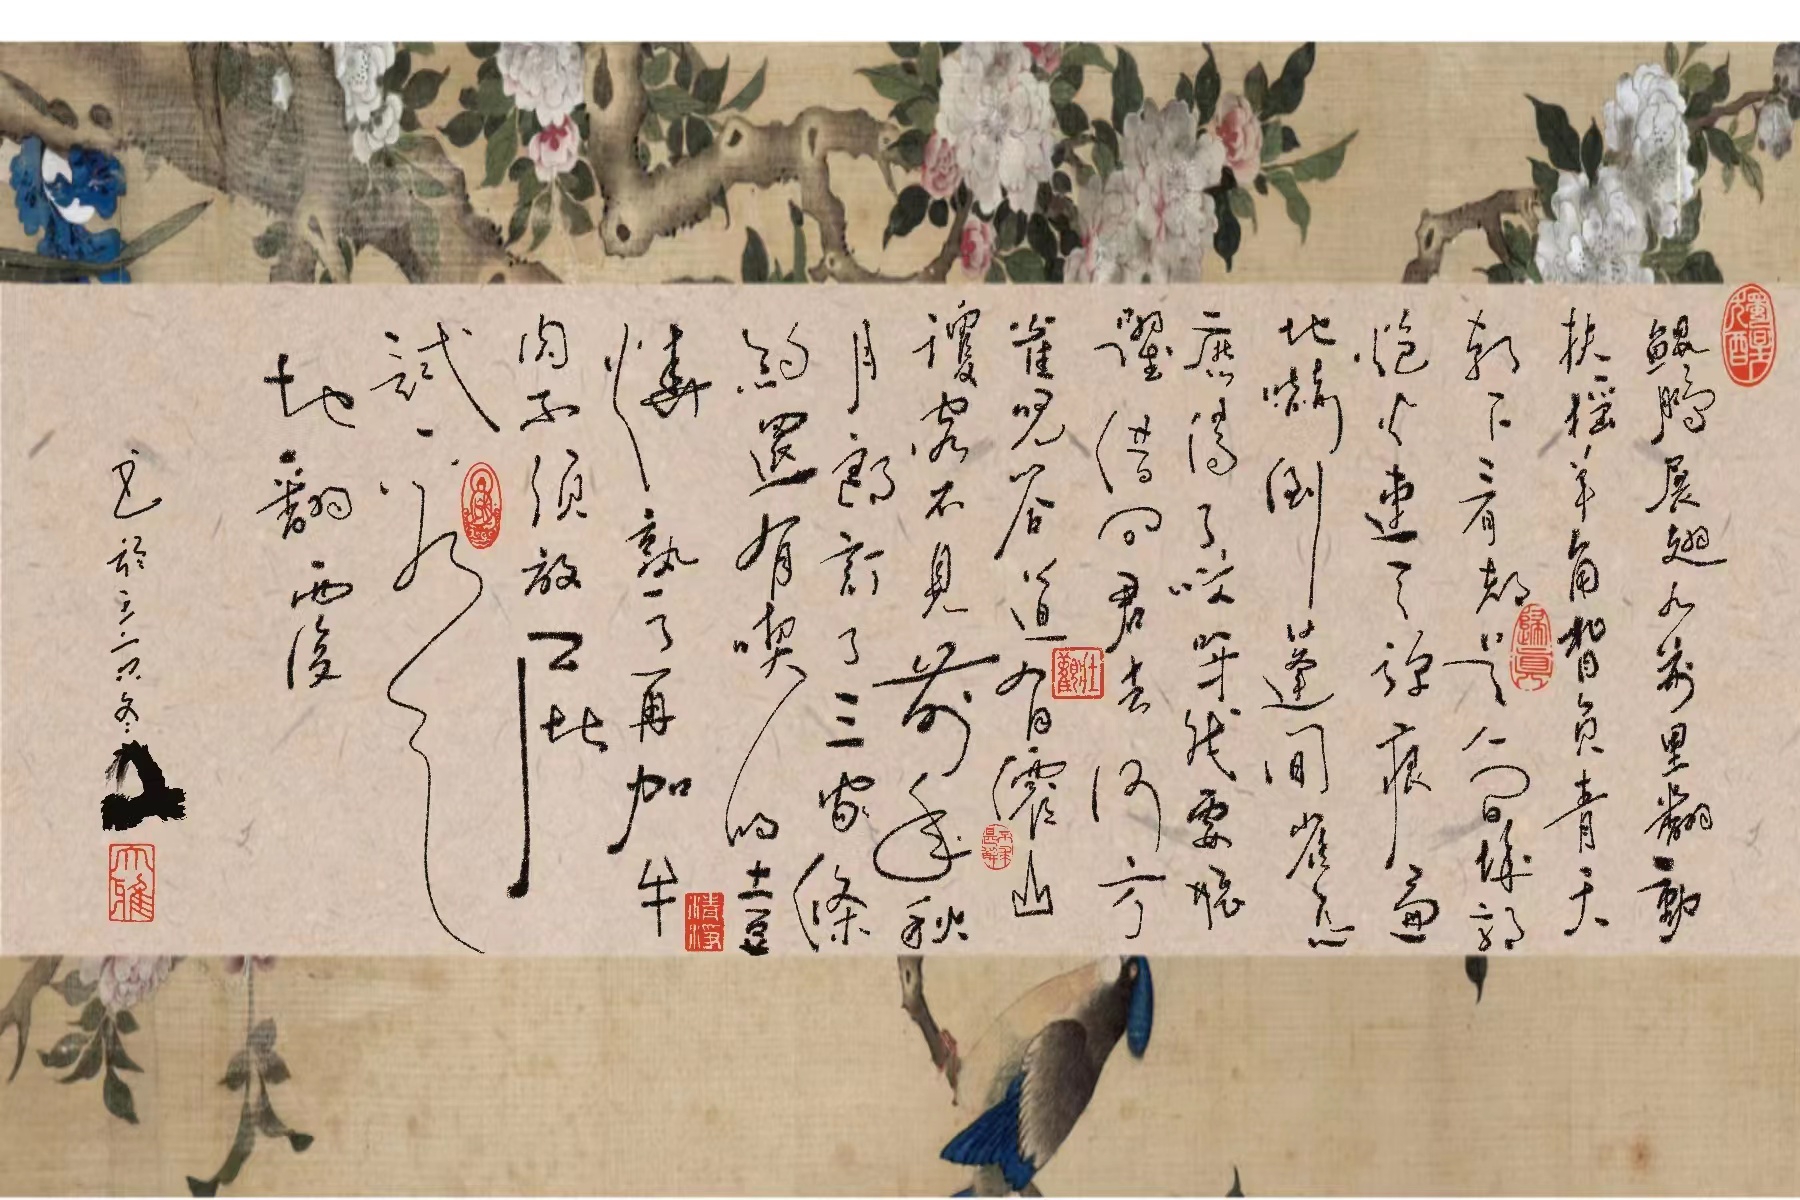 鯤鵬展翅九萬里翻動
扶搖羊角背負青天
朝下看都是人間城郭
炮火連天彈痕遍
地嚇倒蓬間雀怎
麼得了哎呀我要飛
躍借问君去何方
雀兒答道有僊山
瓊閣不見前年秋
月朗訂了三家條
約還有喫的土豆
燒熟了再加牛
肉不須放屁
試看天
地翻覆
大雅